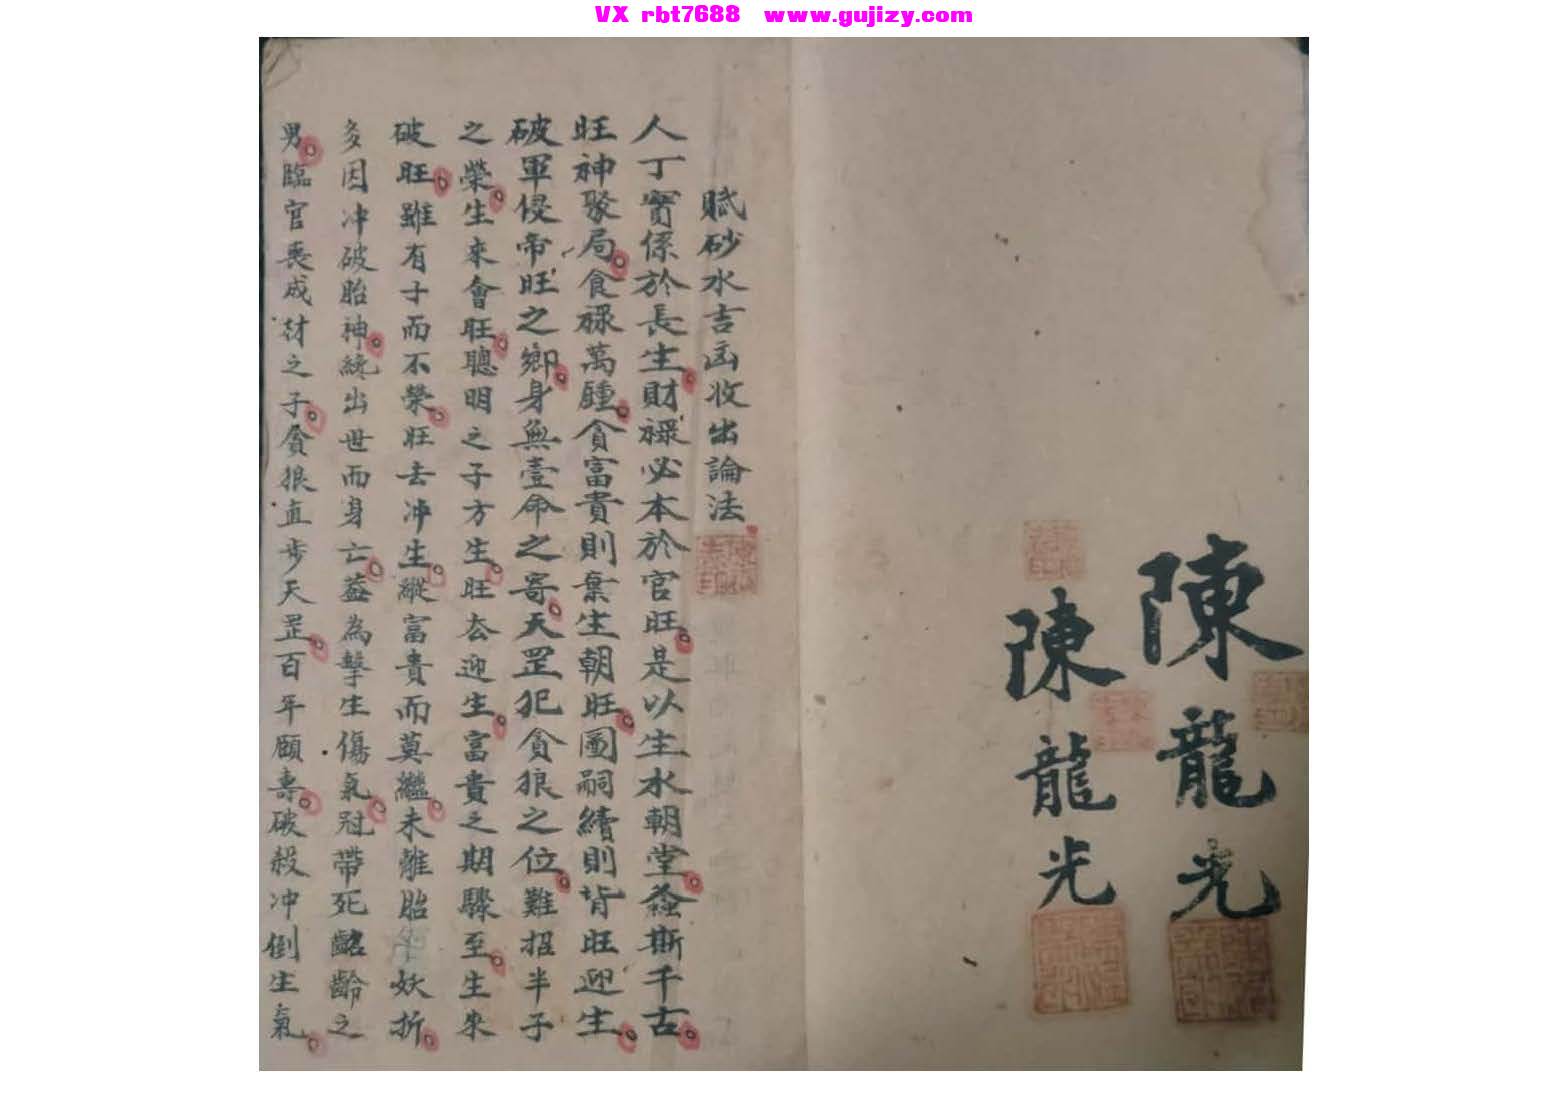 VX rbt7688 www.gujizy.com
陳龍光
陳龍光
賦砂水吉凶收出論法
人丁實係於長生財祿必本於官旺是以生水朝堂螽斯千古
旺神聚局食祿萬鍾貪富貴則棄生朝旺圖嗣續則背旺迎生
破軍侵帝旺之鄉身無壹命之寄天罡犯貪狼之位難招半子
之榮生來會旺聰明之子方生旺去迎生富貴之期驟至生來
破旺雖有子而不榮旺去冲生縱富貴而莫繼未離胎 妖折
多因冲破胎神纔出世而身亡蓋為擊生傷氣冠帶死齠齡之
男臨官喪成材之子貪狼直步天罡百年頤壽破殺冲倒生氣